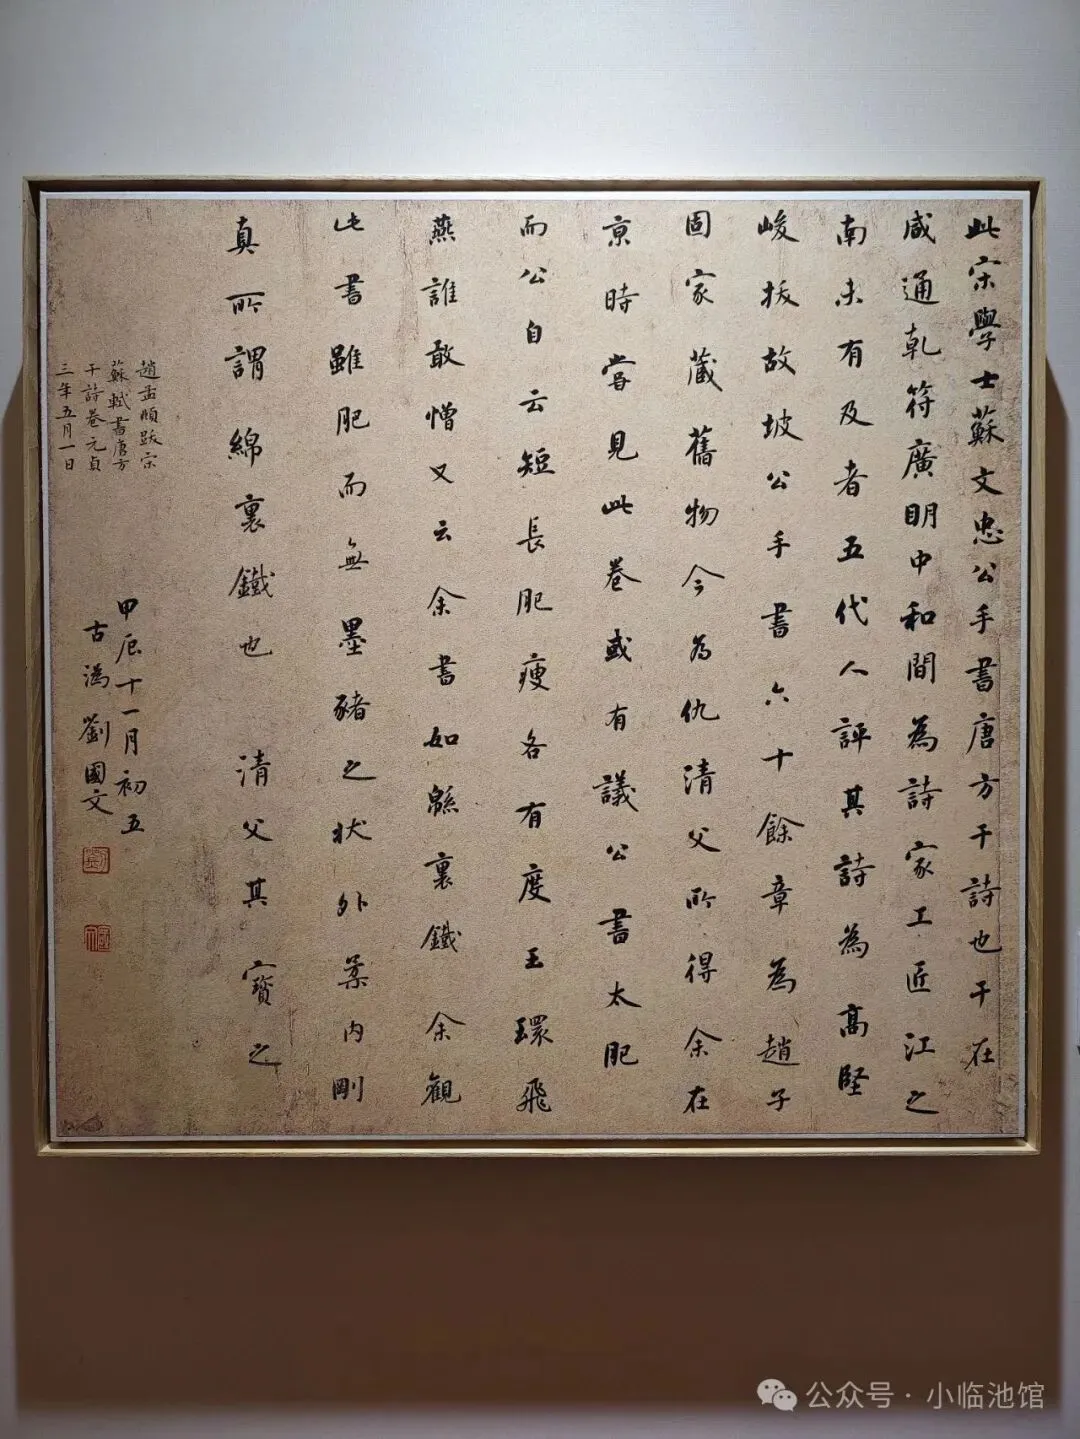 此宋學士蘇文忠公手書唐方干詩也干在
咸通乾符廣明中和間為詩家工匠江之
南未有及者五代人評其詩為高堅
峻拔故坡公手書六十餘章為趙子
固家藏舊物今為仇清父所得余在
京時嘗見此卷或有議公書太肥
而公自云短長肥瘦各有度玉環飛
燕誰敢憎又云余書如綿裏鐵余觀
此書雖肥而無墨豬之狀外柔內剛
真所謂綿裏鐵也清父其寶之
趙孟頫跋宋
蘇軾書唐方
干詩卷元貞
三年五月一日
甲辰十一月初五
古溈劉國文
公众号·小临池馆